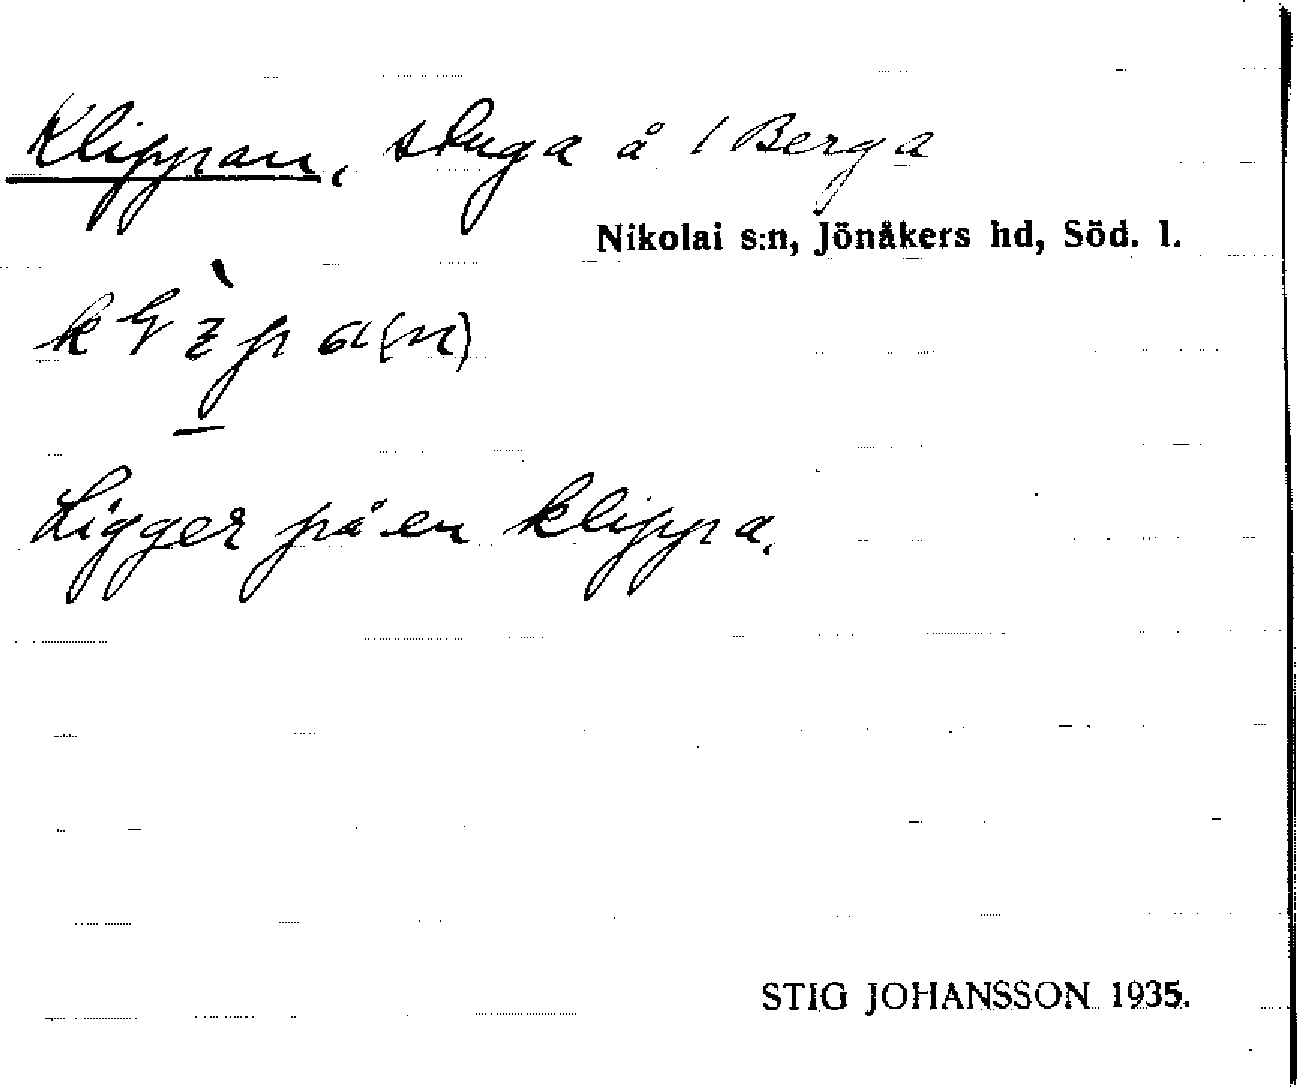 Klippan, stuga å 1 Berga
Nikolai s:n, Jönåkers hd, Söd. l.
Ligger på en klippa.
STIG JOHANSSON 1935.